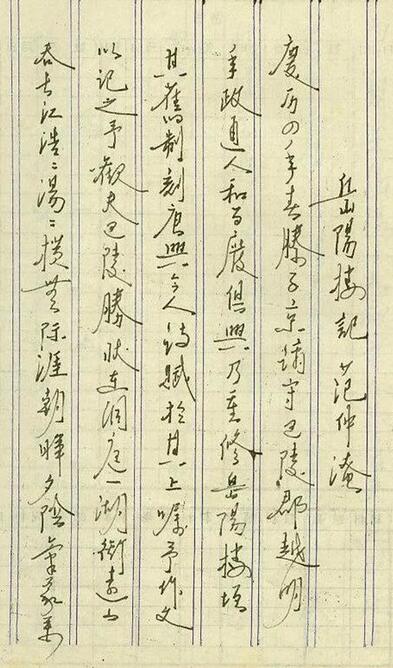 岳陽樓記 范仲淹
慶历四年春滕子京謫守巴陵郡越明
年政通人和百廢俱興乃重修岳陽樓增
其舊制刻唐賢今人詩賦於其上囑予作文
以記之予觀夫巴陵勝狀在洞庭一湖銜遠山
吞長江浩〻湯〻橫無際涯朝暉夕陰氣象萬